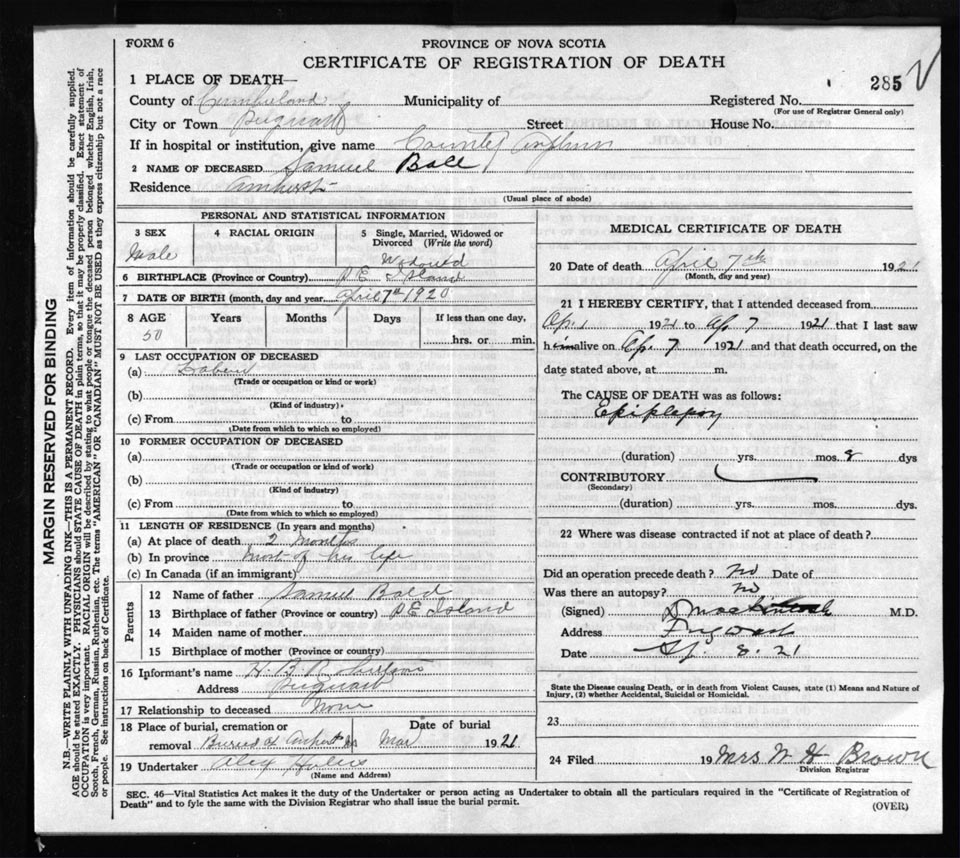 FORM 6
PROVINCE OF NOVA SCOTIA
CERTIFICATE OF REGISTRATION OF DEATH
285
1 PLACE OF DEATH—
County of Cumberland Municipality of Registered No.
(For use of Registrar General only)
City or Town Pugwash Street House No.
If in hospital or institution, give name County
2 NAME OF DECEASED Samuel Ball
Residence Amherst
(Usual place of abode)
PERSONAL AND STATISTICAL INFORMATION
3 SEX 4 RACIAL ORIGIN 5 Single, Married, Widowed or
Divorced (Write the word)
Male Widowed
6 BIRTHPLACE (Province or Country) P.E Island
7 DATE OF BIRTH (month, day and year April 7th 1920
8 AGE Years Months Days If less than one day,
50 hrs. or min.
9 LAST OCCUPATION OF DECEASED
(a)
(Trade or occupation or kind or work)
(b)
(Kind of industry)
(c) From to
(Date from which to which so employed)
10 FORMER OCCUPATION OF DECEASED
(a)
(Trade or occupation or kind of work)
(b)
(Kind of industry)
(c) From to
(Date from which to which so employed)
11 LENGTH OF RESIDENCE (In years and months)
(a) At place of death 2 months
(b) In province most of his life
(c) In Canada (if an immigrant)
Parents
12 Name of father Samuel Bald
13 Birthplace of father (Province or country) P.E Island
14 Maiden name of mother
15 Birthplace of mother (Province or country)
16 Informant's name H. B. R.
Address Pugwash
17 Relationship to deceased None
18 Place of burial, cremation or Date of burial
removal Buried at Mar 1921
19 Undertaker Alex
(Name and Address)
MEDICAL CERTIFICATE OF DEATH
20 Date of death April 7th 1921
(Month, day and year)
21 I HEREBY CERTIFY, that I attended deceased from
Ap. 1 1921 to Ap 7 1921 that I last saw
him alive on Ap. 7 1921 and that death occurred, on the
date stated above, at m.
The CAUSE OF DEATH was as follows:
Epiplepsy
(duration) yrs. mos. 8 dys
CONTRIBUTORY
(Secondary)
(duration) yrs. mos. dys.
22 Where was disease contracted if not at place of death?
Did an operation precede death? No Date of
Was there an autopsy? No
(Signed) M.D.
Address Pugwash
Date Ap. 8. 21
State the Disease causing Death, or in death from Violent Causes, state (1) Means and Nature of
Injury, (2) whether Accidental, Suicidal or Homicidal.
23
24 Filed 19 Mrs W H Brown
Division Registrar
SEC. 46—Vital Statistics Act makes it the duty of the Undertaker or person acting as Undertaker to obtain all the particulars required in the "Certificate of Registration of
Death" and to fyle the same with the Division Registrar who shall issue the burial permit.
(OVER)
MARGIN RESERVED FOR BINDING
N.B.—WRITE PLAINLY WITH UNFADING INK—THIS IS A PERMANENT RECORD. Every item of information should be carefully supplied.
AGE should be stated EXACTLY. PHYSICIANS should STATE CAUSE OF DEATH in plain terms, so that it may be properly classified. Exact statement of
OCCUPATION is very important. RACIAL ORIGIN will be described by stating to what people or tongue the deceased person belonged whether English, Irish,
Scotch, French, German, Russian, Ruthenian, etc. The terms "AMERICAN" OR "CANADIAN" MUST NOT BE USED as they express citizenship but not a race
or people. See instructions on back of Certificate.